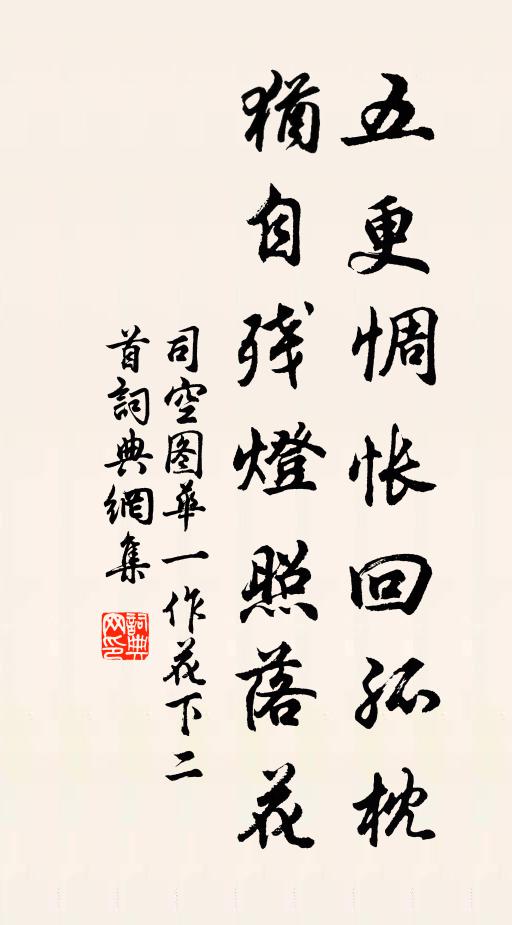 五更惆怅回孤枕
猶自残燈照落花
司空图華一作花下二
首詞典網集
詞典网印